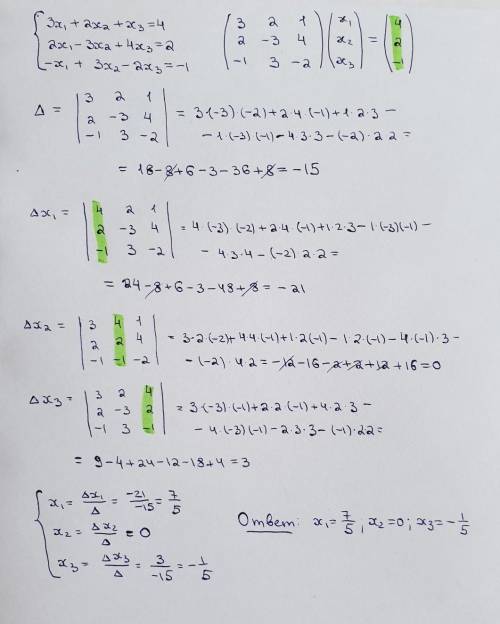 3x₁ + 2x₂ + x₃ = 4
2x₁ - 3x₂ + 4x₃ = 2
-x₁ + 3x₂ - 2x₃ = -1
( 3 2 1 ) ( x₁ ) ( 4 )
( 2 -3 4 ) ( x₂ ) = ( 2 )
( -1 3 -2 ) ( x₃ ) ( -1 )
Δ = | 3 2 1 | = 3·(-3)·(-2)+2·4·(-1)+1·2·3 -
| 2 -3 4 |
| -1 3 -2 | - 1·(-3)·(-1) - 4·3·3 - (-2)·2·2 =
= 18 - 8 + 6 - 3 - 36 + 8 = -15
Δx₁ = | 4 2 1 |
| 2 -3 4 | = 4·(-3)·(-2)+2·4·(-1)+1·2·3 - 1·(-3)(-1) -
| -1 3 -2 | - 4·3·4 - (-2)·2·2 =
= 24 - 8 + 6 - 3 - 48 + 8 = -21
Δx₂ = | 3 4 1 | = 3·2·(-2)+4·4·(-1)+1·2(-1) - 1·2·(-1) - 4·(-1)·3 -
| 2 2 4 |
| -1 -1 -2 | - (-2)·4·2 = -12 - 16 - 2 + 2 + 12 + 16 = 0
Δx₃ = | 3 2 4 |
| 2 -3 2 | = 3·(-3)·(-1)+2·2·(-1)+4·2·3 -
| -1 3 -1 | - 4·(-3)(-1) - 2·3·3 - (-1)·2·2 =
= 9 - 4 + 24 - 12 - 18 + 4 = 3
x₁ = Δx₁/Δ = -21/-15 = 7/5
x₂ = Δx₂/Δ = 0
x₃ = Δx₃/Δ = 3/-15 = -1/5
Ответ: x₁ = 7/5, x₂ = 0; x₃ = -1/5